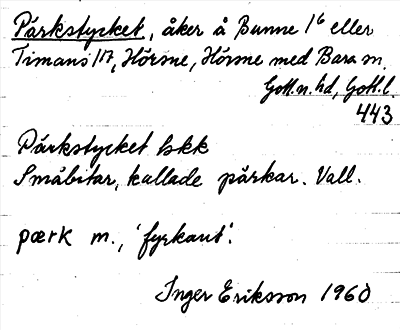 Pärkstycket, åker å Bunne 1⁶ eller
Timans 1¹⁷, Hörsne, Hörsne med Bara sn.
Gotl. n. hd, Gotl. l.
443
Pärkstycket bkk
Småbitar, kallade pärkar. Vall.
pærk m., 'fyrkant'.
Inger Eriksson 1960